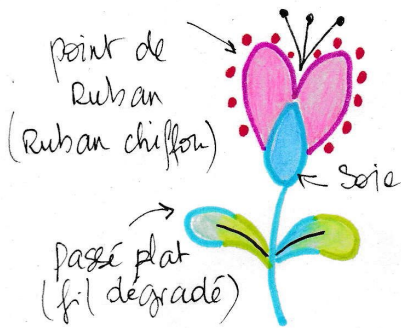 point de
Ruban
(Ruban chiffon)
Soie
passé plat
(fil dégradé)